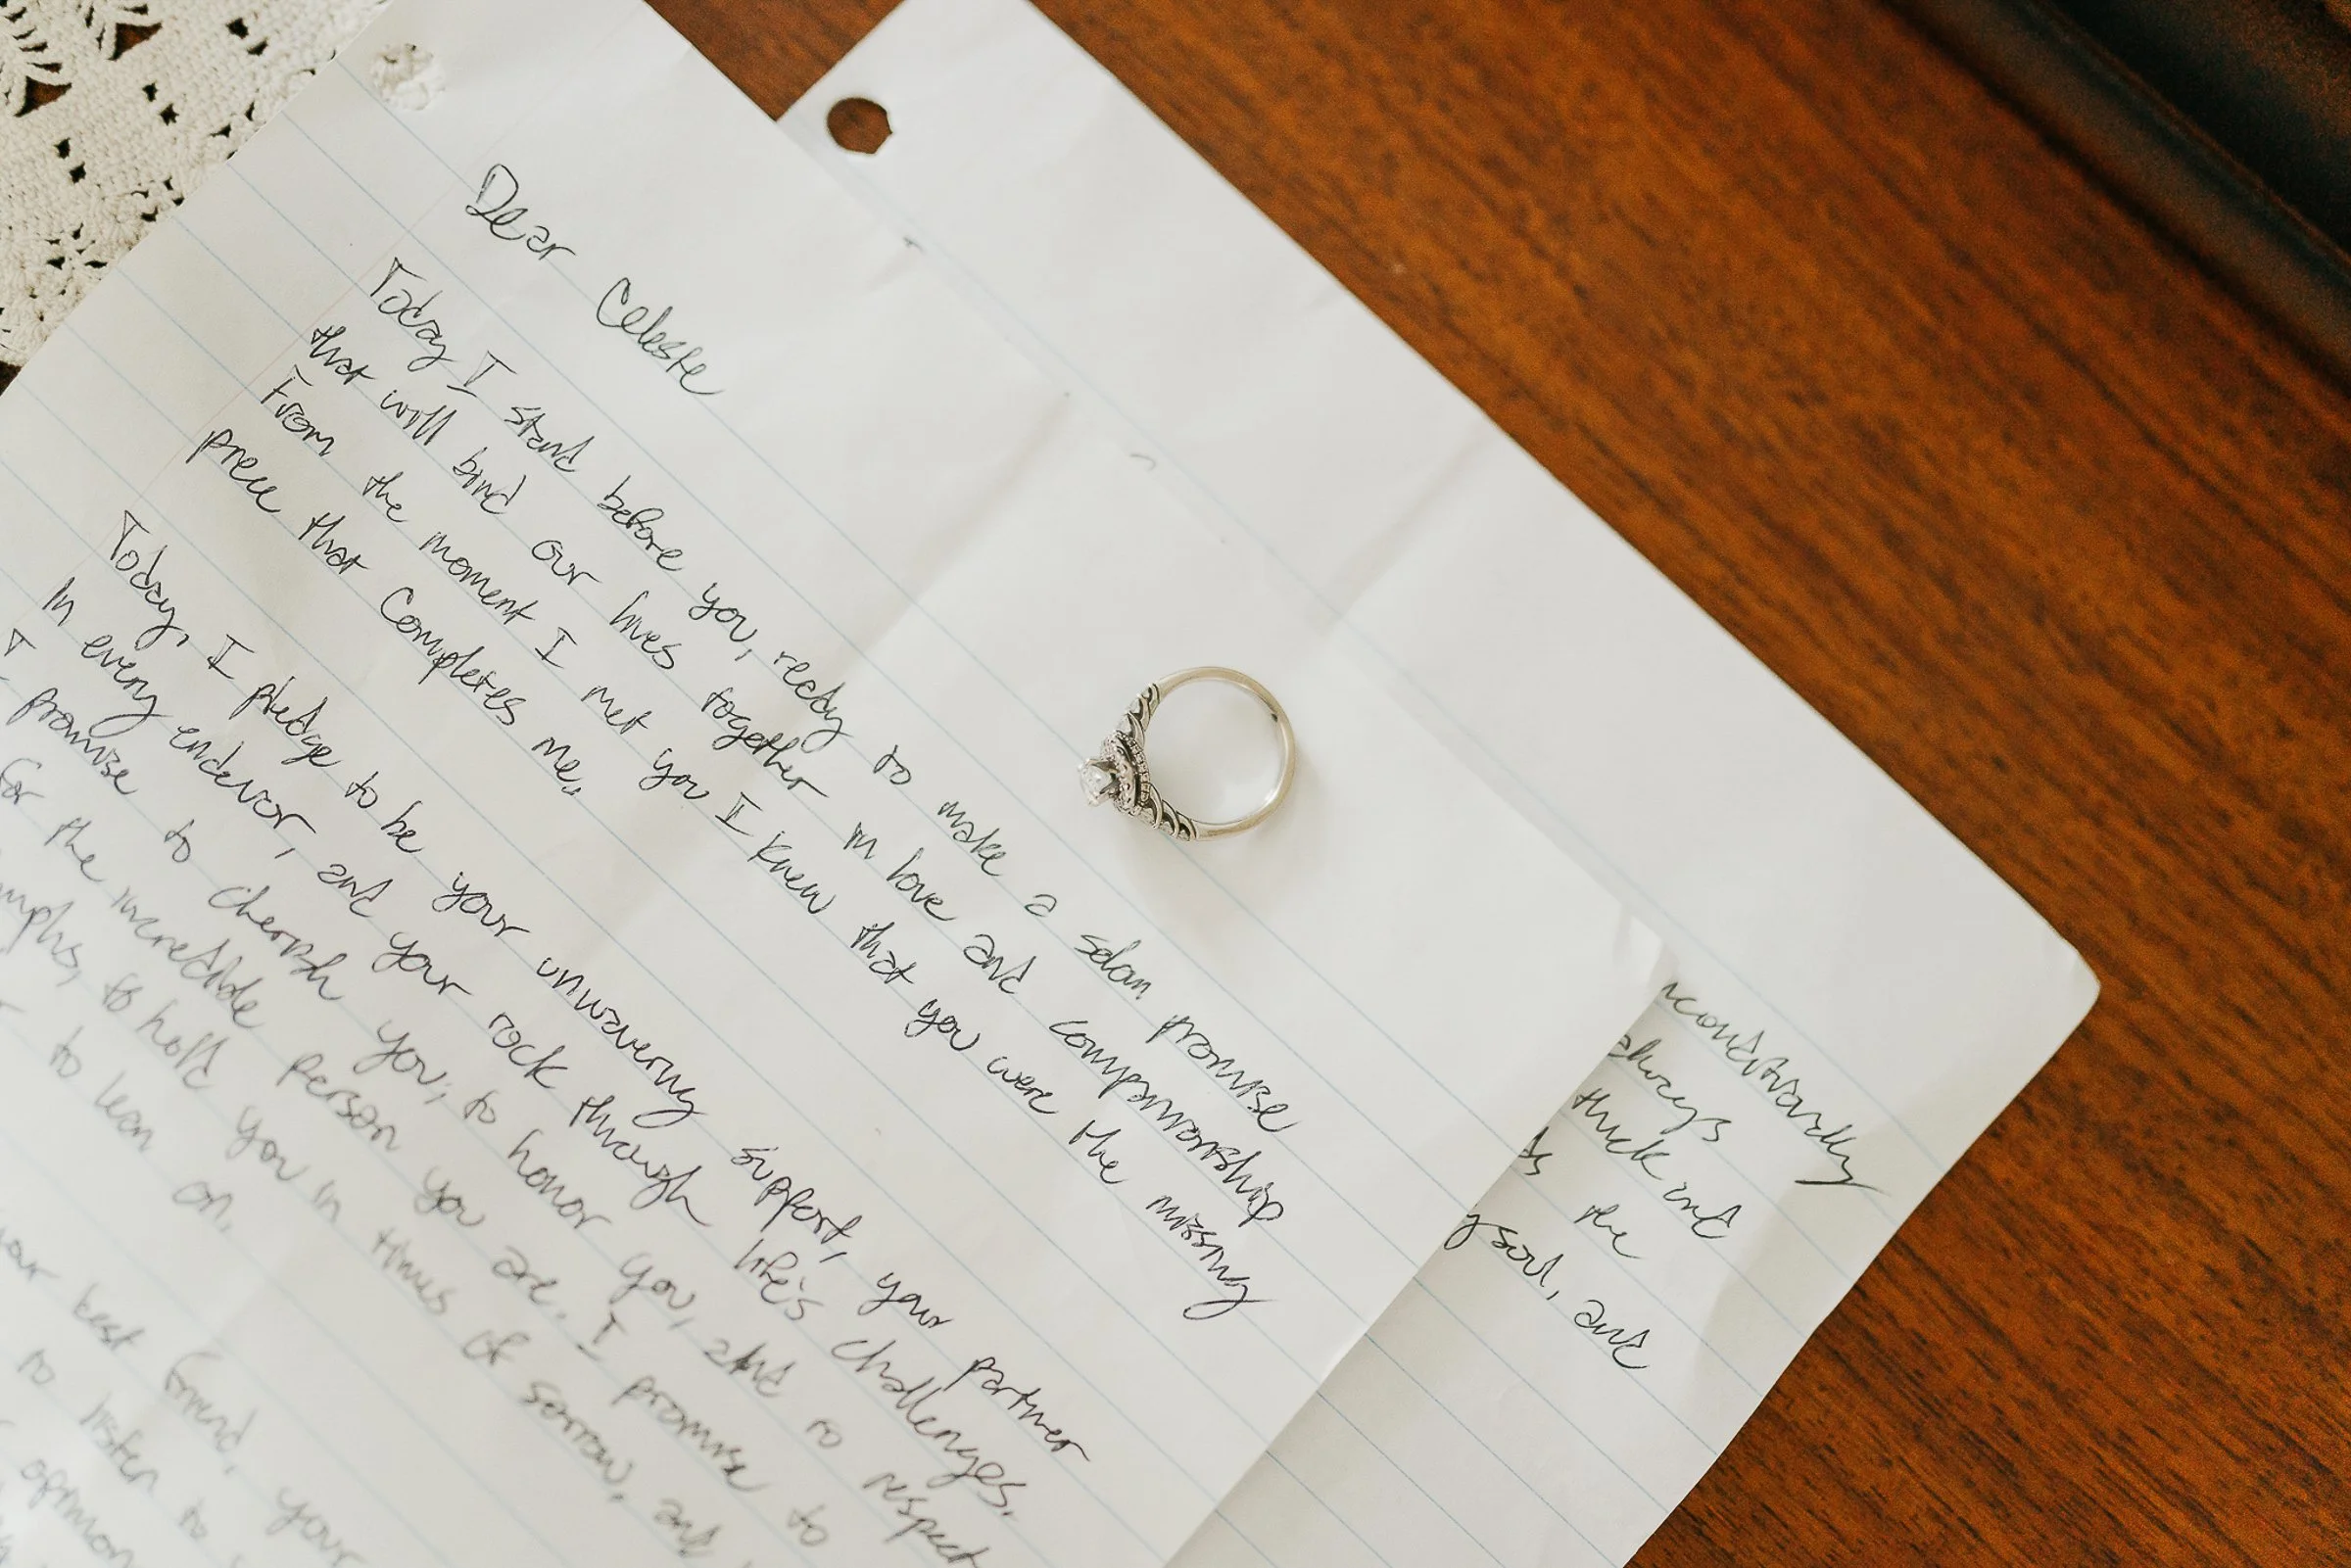 Dear Celeste
Today I stand before you, ready to make a solam promise
that will bind our lives together in love and companionship
From the moment I met you I knew that you were the missing
piece that Completes me.
Today, I pledge to be your unwavering support, your partner
In every endevor, and your rock through life's challenges.
I promise to cherish you, to honor you, and to respect
for the incredible person you are. I promise to
to hold you in times of sorrow, and
to lean on.
best friend, your
to listen to
always
thick and
the
soul, and